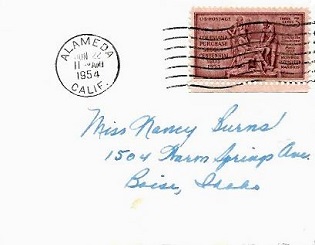 ALAMEDA
JUN 22
11 AM
1954
CALIF.
U.S. POSTAGE
LOUISIANA
PURCHASE
1953
3¢
Miss Nancy Burns
1504 Warm Springs Ave.
Boise, Idaho